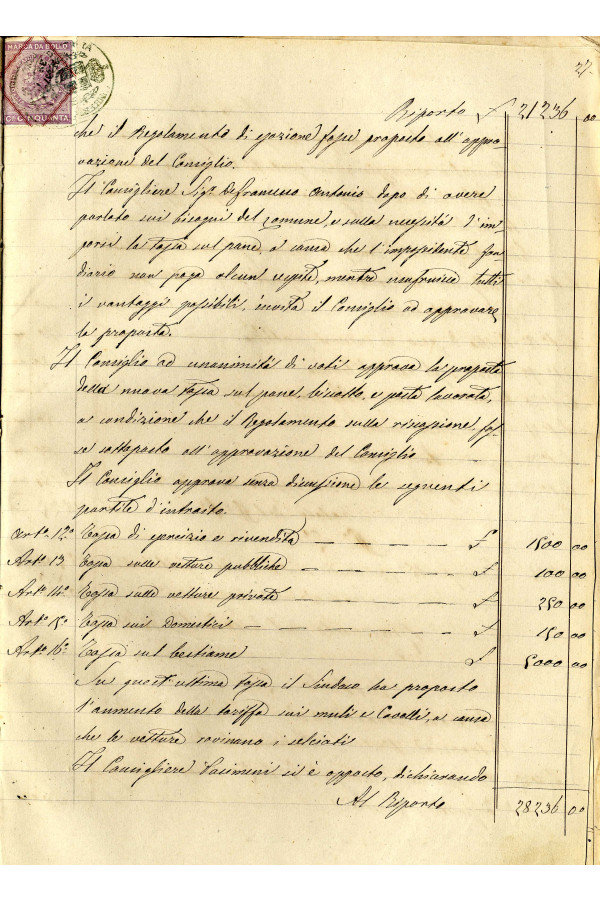 MARCA DA BOLLO
CMI CINQUANTA
27
Riporto £ 21236 00
che il Regolamento di esazione fosse proposto all'appro-
vazione del Consiglio.
Il Consigliere Sigr. Defrancesco Antonio dopo di avere
parlato sui bisogni del Comune, e sulla necessità d'im-
porsi la tassa sul pane, a causa che l'imposta fon-
diario non paga alcun cespite, mentre usufruisce tutti
i vantaggi possibili, invita il Consiglio ad approvare
la proposta.
Il Consiglio ad unanimità di voti approva la proposta
della nuova tassa sul pane, biscotto, e pasta lavorata,
a condizione che il Regolamento sulla riscossione, fos-
se sottoposto all'approvazione del Consiglio
Il Consiglio approva senza discussione le seguenti
partite d'introito.
Art.o 12.o Tassa di esercizio e rivendita £ 1500 00
Art.o 13 Tassa sulle vetture pubbliche £ 100 00
Art.o 14.o Tassa sulle vetture private £ 250 00
Art.o 15.o Tassa sui Domestici £ 150 00
Art.o 16.o Tassa sul bestiame £ 5000 00
Su quest'ultima tassa il Sindaco ha proposto
l'aumento della tariffa sui muli e Cavalli, a causa
che le vetture rovinano i selciati
Il Consigliere Pacimeni si è opposto, dichiarando
Al Riporto 28236 00